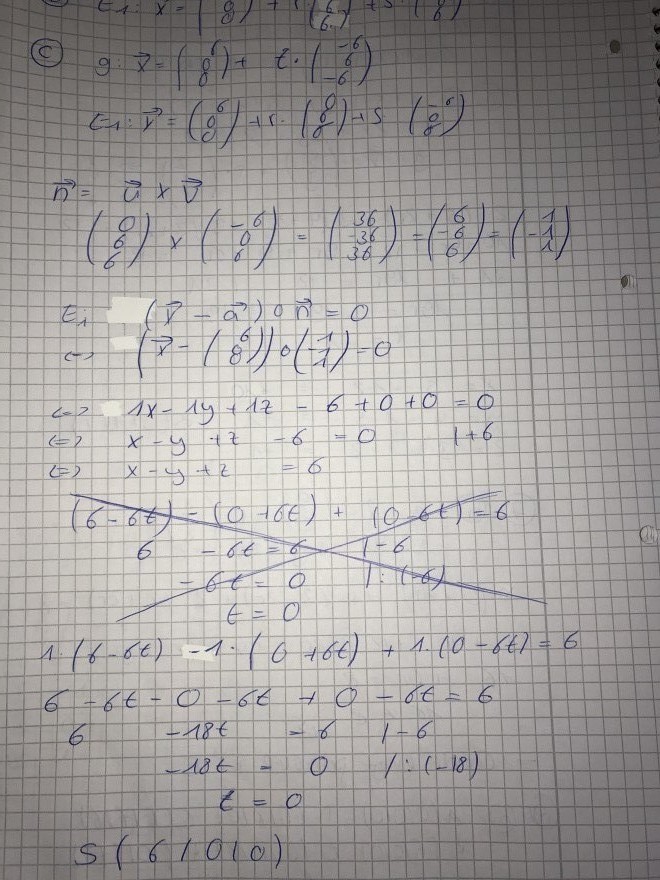 E₁: x⃗ = ( 8 ) + r ( 6 6 ) + s ( 8 )
ⓒ g: x⃗ = ( 6 0 0 ) + t · ( -6 6 -6 )
E₁: x⃗ = ( 6 0 0 ) + r · ( 0 6 6 ) + s ( -6 0 6 )
n⃗ = u⃗ × v⃗
( 0 6 6 ) × ( -6 0 6 ) = ( 36 -36 36 ) = ( 6 -6 6 ) = ( 1 -1 1 )
E₁ (x⃗ - a⃗) ∘ n⃗ = 0
<-> (x⃗ - ( 6 0 0 )) ∘ ( 1 -1 1 ) = 0
<=> 1x - 1y + 1z - 6 + 0 + 0 = 0
<=> x - y + z - 6 = 0 | + 6
<=> x - y + z = 6
(6 - 6t) - (0 + 6t) + (0 - 6t) = 6
6 - 6t = 6 | - 6
- 6t = 0 | : (-6)
t = 0
1 · (6 - 6t) - 1 · (0 + 6t) + 1 · (0 - 6t) = 6
6 - 6t - 0 - 6t + 0 - 6t = 6
6 - 18t = 6 | - 6
- 18t = 0 | : (-18)
t = 0
S ( 6 | 0 | 0 )